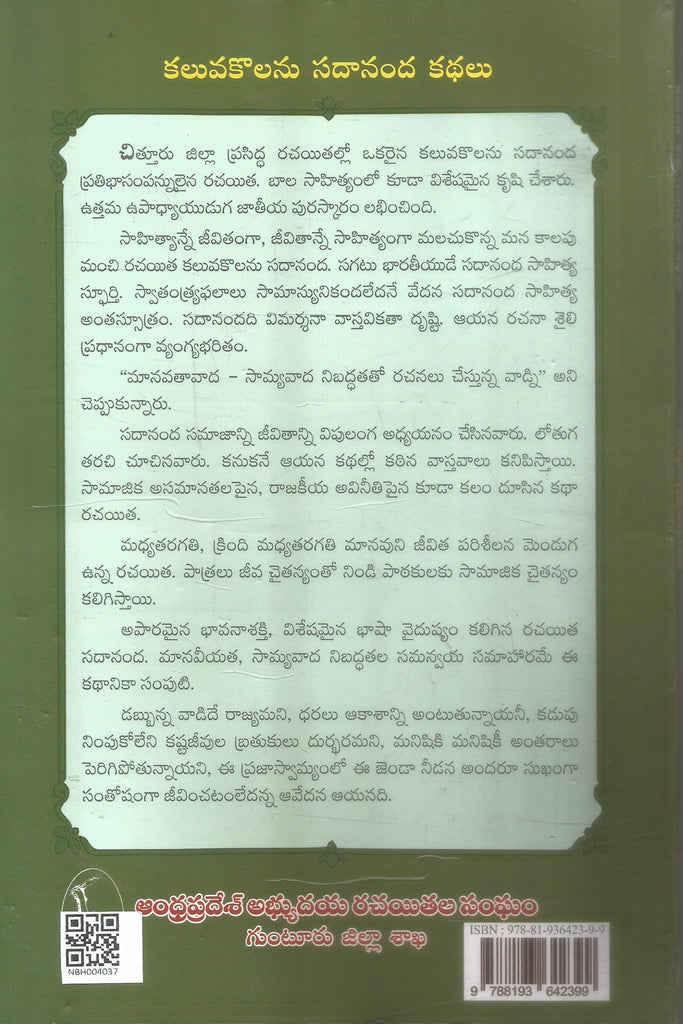 కలువకొలను సదానంద కథలు
చిత్తూరు జిల్లా ప్రసిద్ధ రచయితల్లో ఒకరైన కలువకొలను సదానంద
ప్రతిభాసంపన్నులైన రచయిత. బాల సాహిత్యంలో కూడా విశేషమైన కృషి చేశారు.
ఉత్తమ ఉపాధ్యాయుడుగ జాతీయ పురస్కారం లభించింది.
సాహిత్యాన్నే జీవితంగా, జీవితాన్నే సాహిత్యంగా మలచుకొన్న మన కాలపు
మంచి రచయిత కలువకొలను సదానంద. సగటు భారతీయుడే సదానంద సాహిత్య
స్ఫూర్తి. స్వాతంత్ర్యఫలాలు సామాన్యునికందలేదనే వేదన సదానంద సాహిత్య
అంతస్సూత్రం. సదానందది విమర్శనా వాస్తవికతా దృష్టి. ఆయన రచనా శైలి
ప్రధానంగా వ్యంగ్యభరితం.
“మానవతావాద – సామ్యవాద నిబద్ధతతో రచనలు చేస్తున్న వాడ్ని” అని
చెప్పుకున్నారు.
సదానంద సమాజాన్ని జీవితాన్ని విపులంగ అధ్యయనం చేసినవారు. లోతుగ
తరచి చూచినవారు. కనుకనే ఆయన కథల్లో కఠిన వాస్తవాలు కనిపిస్తాయి.
సామాజిక అసమానతలపైన, రాజకీయ అవినీతిపైన కూడా కలం దూసిన కథా
రచయిత.
మధ్యతరగతి, క్రింది మధ్యతరగతి మానవుని జీవిత పరిశీలన మెండుగ
ఉన్న రచయిత. పాత్రలు జీవ చైతన్యంతో నిండి పాఠకులకు సామాజిక చైతన్యం
కలిగిస్తాయి.
అపారమైన భావనాశక్తి, విశేషమైన భాషా వైదుష్యం కలిగిన రచయిత
సదానంద. మానవీయత, సామ్యవాద నిబద్ధతల సమన్వయ సమాహారమే ఈ
కథానికా సంపుటి.
డబ్బున్న వాడిదే రాజ్యమని, ధరలు ఆకాశాన్ని అంటుతున్నాయనీ, కడుపు
నింపుకోలేని కష్టజీవుల బ్రతుకులు దుర్భరమని, మనిషికి మనిషికీ అంతరాలు
పెరిగిపోతున్నాయని, ఈ ప్రజాస్వామ్యంలో ఈ జెండా నీడన అందరూ సుఖంగా
సంతోషంగా జీవించటంలేదన్న ఆవేదన ఆయనది.
ఆంధ్రప్రదేశ్ అభ్యుదయ రచయితల సంఘం
గుంటూరు జిల్లా శాఖ
NBH004037
ISBN : 978-81-936423-9-9
9 788193 642399